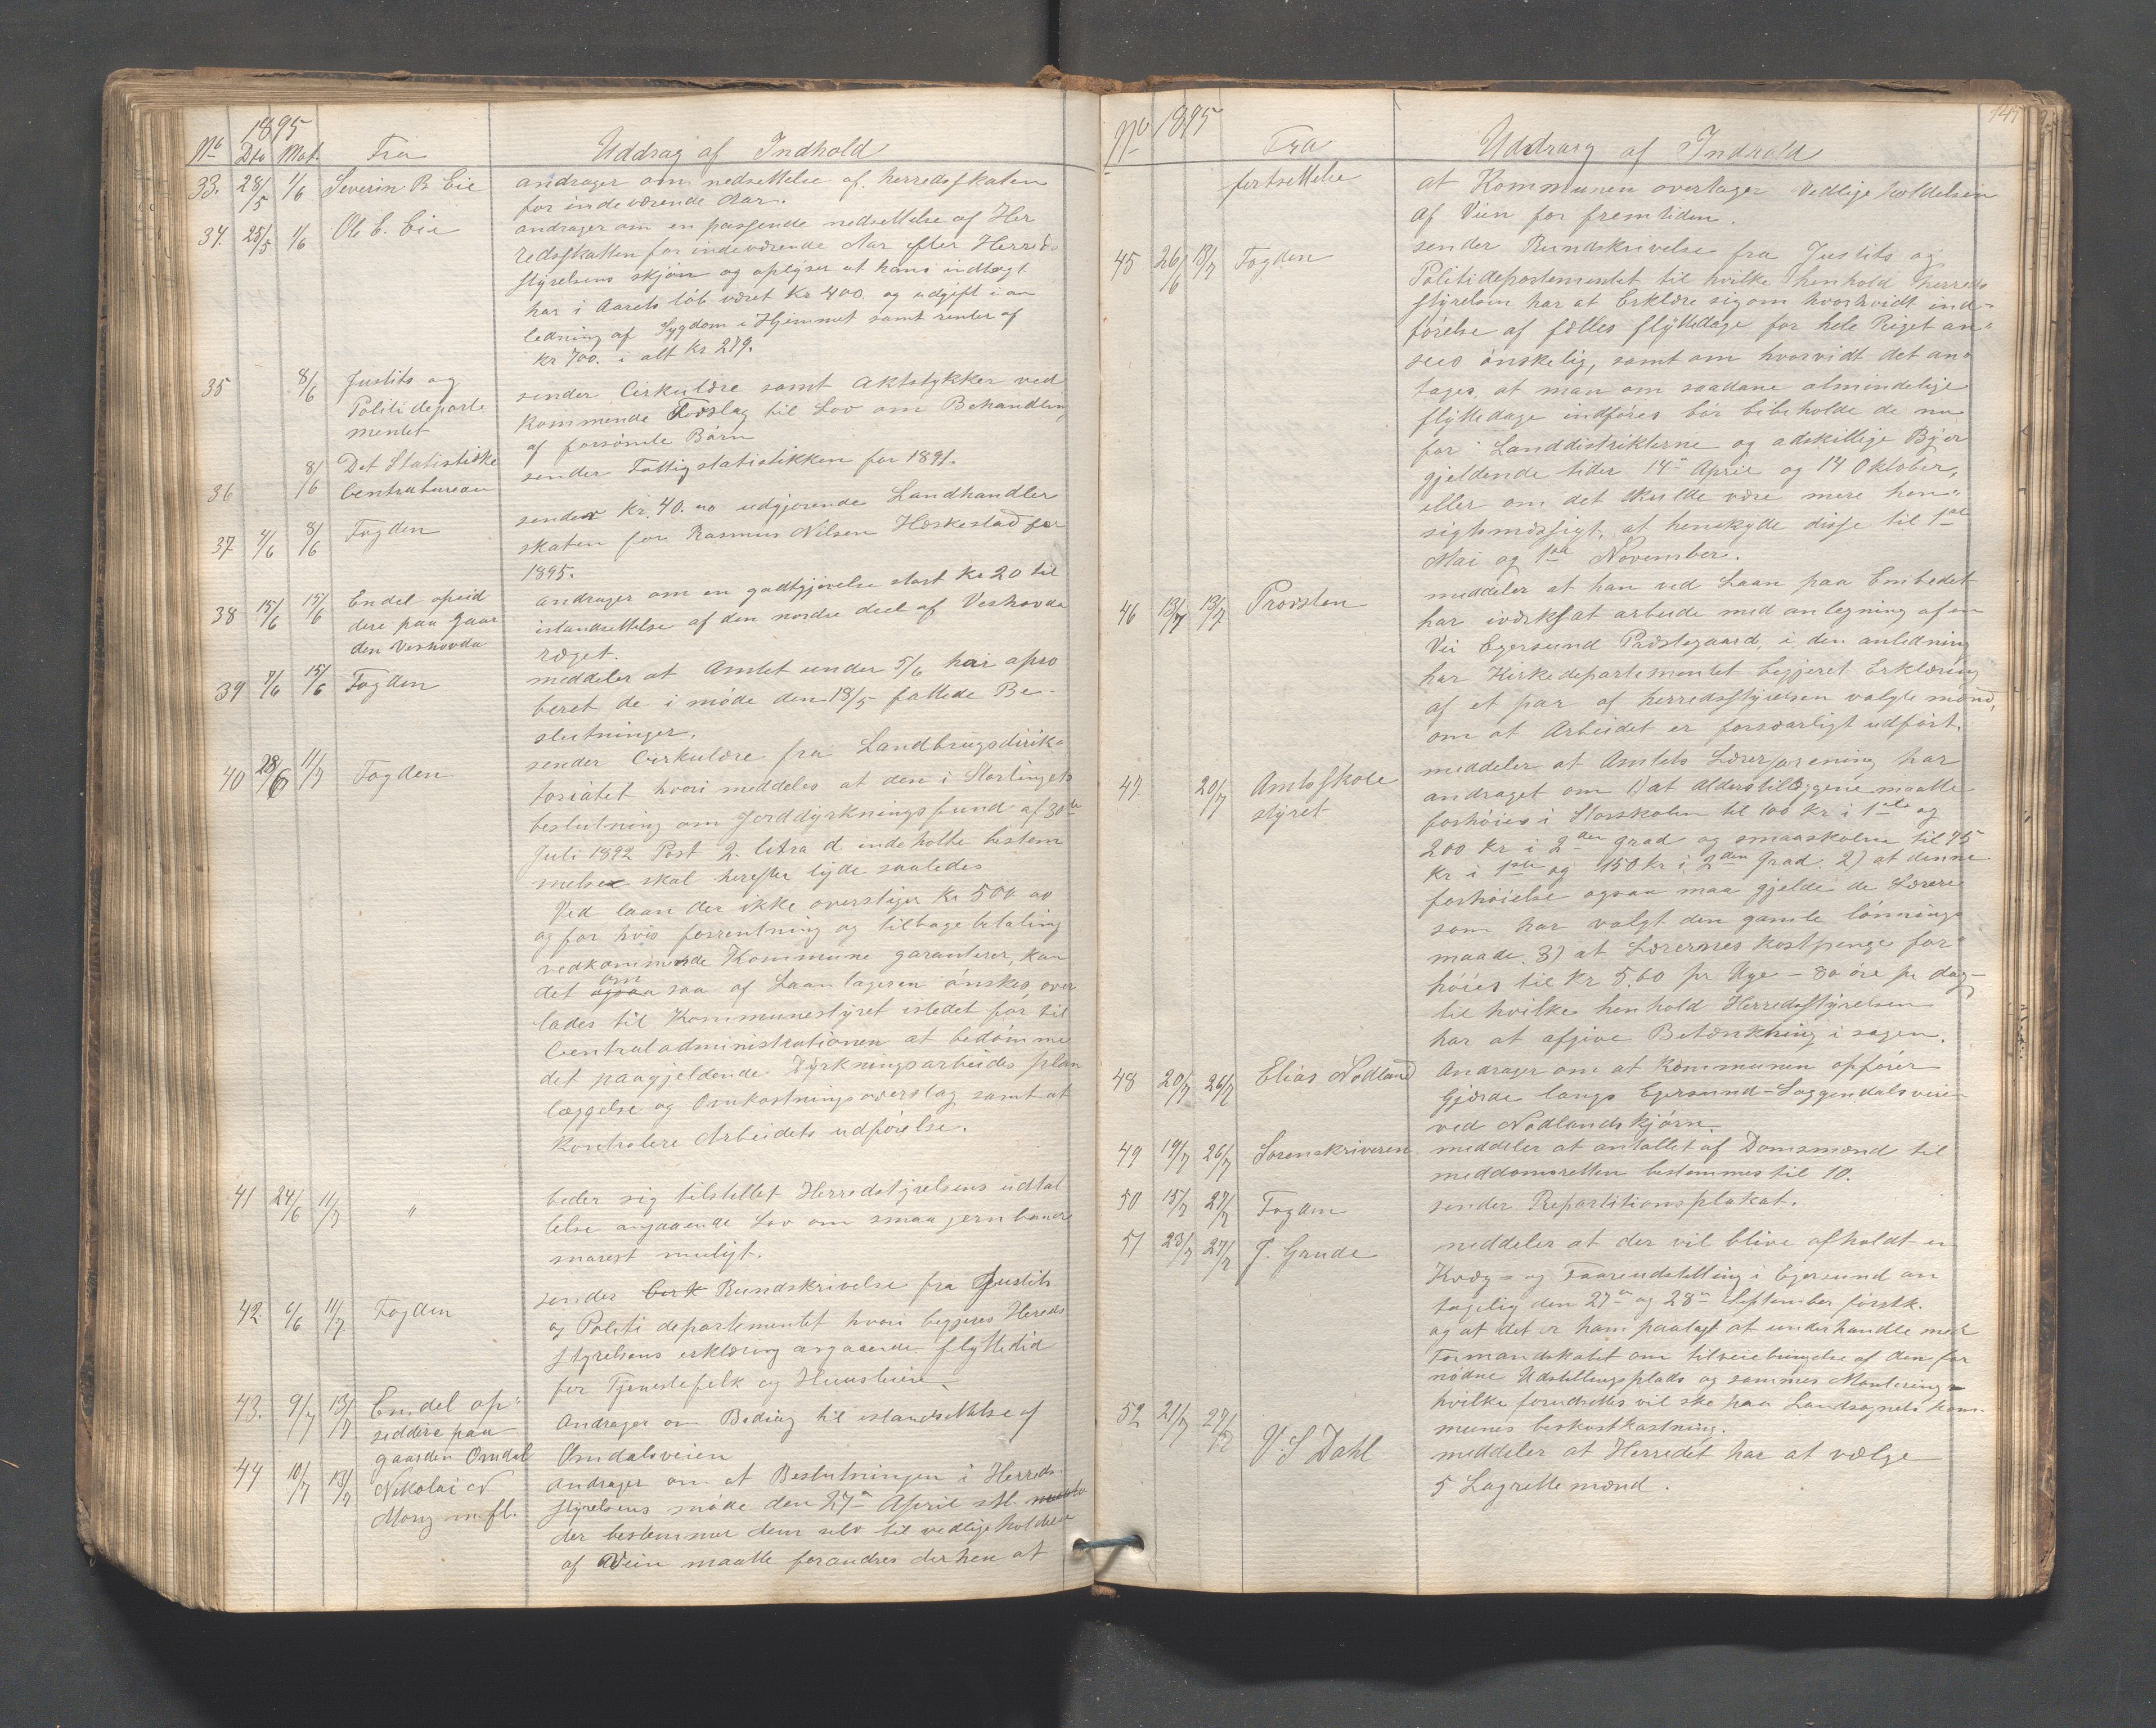 1895
No Dto Mot. Fra Uddrag af Indhold
33. 28/5 1/6 Severin B. Eie andrager om nedsettelse af herredsskaten
for indeværende Aar.
34. 25/5 1/6 Ole E. Eie andrager om en passende nedsettelse af Her
redsskatten for indeværende Aar efter Herreds
styrelsens skjøn og oplyser at hans indtægt
har i Aarets løb været Kr 400. og udgift i an
ledning af Sygdom i Hjemmet samt renter af
Kr 700. i alt Kr 279.
35 8/6 Justits og sender Cirkulære samt Aktstykker ved
Politideparte kommende Forslag til Lov om Behandling
mentet af forsømte Børn
36 8/6 Det Statistiske sender Fattigstatistikken for 1891.
Centralbureau
37 4/6 8/6 Fogden sender Kr. 40.00 udgjørende Landhandler
skaten for Rasmus Nilsen Hæskestad for
1895.
38 15/6 15/6 Endel opsid andrager om en godtgjørelse stort Kr 20 til
dere paa Gaar istandsettelse af den nordre deel af Veshovda
den Veshovda ræget.
39 7/6 15/6 Fogden meddeler at Amtet under 5/6 har apro
beret de i møde den 18/5 fattede Be-
slutninger.
40 28/6 11/7 Fogden sender Cirkulære fra Landbrugsdirik-
toriatet hvori meddeles at den i Stortingets
beslutning om Jorddyrkningsfund af 30te
Juli 1892 Post 2. letra d indeholte bestem
melse skal herefter lyde saaledes
Ved laan der ikke overstiger Kr 500 00
og for hvis forrentning og tilbagebetaling
vedkommende Kommune garanterer, kan
det ogsaa om saa af Laantageren ønskes, over
lades til Kommunestyret istedet for til
Centraladministrationen at bedømme
det paagjeldende Dyrkningsarbeides plan
læggelse og Omkostningsoverslag samt at
kontrolere Arbeidets udførelse.
41 24/6 11/7 " beder sig tilstellet Herredstyrelsens udtal
telse angaaende Lov om smaa jernbaner
snarest muligt.
42. 6/6 11/7 Fogden sender Cirk Rundskrivelse fra Justits
og Politi departementet hvori begjeres Hereds
styrelsens erklæring angaaende flyttetid
for Tjenestefolk og Huusleiere
43. 9/7 13/7 Endel op= Andrager om Bidrag til istandsettelse af
siddere paa Omdalsveien
gaarden Omdal
44 10/7 13/7 Nikolai N andrager om at Beslutningen i Herreds-
Mong m.fl. styrelsens møde den 27de April stl.
der bestemmer dem selv til vedligeholdelse
af Veien maatte forandres derhen at
145
No 1895 Fra Uddrag af Indhold
fortsettelse at Kommunen overtager Vedligeholdelsen
af Veien for fremtiden.
45 26/6 13/7 Fogden sender Rundskrivelse fra Justits og
Politidepartementet til hvilke henhold Herreds
styrelsen har at Erklære sig om hvorvidt ind=
førelse af fælles flyttedage for hele Riget an=
sees ønskelig, samt om hvorvidt det an=
tages, at man om saadane almindelige
flyttedage indføres bør bibeholde de nu
for Landdistrikterne og adskillige Byer
gjeldende tider 14de April og 14 Oktober,
eller om det skulde være mere hen=
sigtsmæssigt, at henskyde disse til 1ste
Mai og 1ste November.
46 13/7 13/7 Provsten meddeler at han ved Laan paa Embedet
har iværksat arbeide med anlegning af en
Vei Egersund Præstegaard, i den anledning
har Kirkedepartementet begjeret Erklæring
af et par af herredsstyrelsen valgte mænd,
om at Arbeidet er forsvarligt udført.
47 20/7 Amtsskole meddeler at Amtets Lærerforening har
styret andraget om 1) at Alderstillæggene maatte
forhøies i Storskolen til 100 Kr i 1ste og
200 Kr i 2den grad og smaaskolen til 75
Kr i 1ste og 150 Kr i 2den Grad. 2) at denne
forhøielse ogsaa maa gjelde de Lærere
som har valgt den gamle lønnings
maade. 3) at Lærernes kostpenge for=
høies til Kr 5.60 pr Uge – 80 øre pr dag –
til hvilke henhold Herredsstyrelsen
har at afgive Betænkning i sagen.
48 20/7 26/7 Elias Nødland Andrager om at Kommunen opfører
Gjærde langs Egersund-Soggendalsveien
ved Nødlandskjørn.
49 19/7 26/7 Sorenskriveren meddeler at antallet af Domsmænd til
meddomsretten bestemmes til 10.
50 15/7 27/7 Fogden sender Repartitionsplakat.
51 23/7 27/7 J. Grude meddeler at der vil blive afholdt en
Kvæg- og Faareudstilling i Egersund an
tagelig den 27de og 28de September førstk.
og at det er ham paalagt at underhandle med
Formandskabet om tilveiebringelse af den for
nødne Udstillingsplads og sammes Montering-
hvilke forudsettes vil ske paa Landsognets kom-
munes beskostkastning.
52 21/7 27/7 V. S Dahl meddeler at Herredet har at vælge
5 Lagrettemænd.